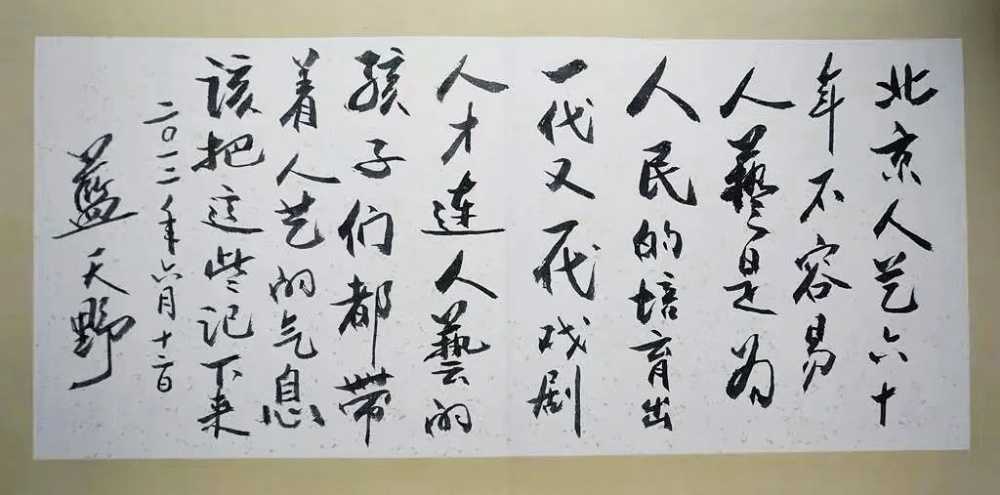 北京人艺六十
年不容易
人藝是为
人民的培育出
一代又一代戏剧
人才連人藝的
孩子们都带
着人艺的气息
该把這些记下来
二〇一二年六月十二日
藍天野